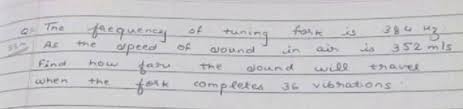 Q= The frequency of tuning fork is 384 Hz
As the speed of sound in air is 352 m/s
Find how faru the sound will travel
when the fork completes 36 vibrations.